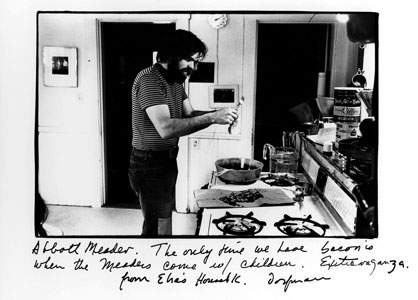 Abbott Meader. The only time we have bacon is
when the Meaders come w/ children. Extravaganza.
from Elsa's Housebook. Dorfman